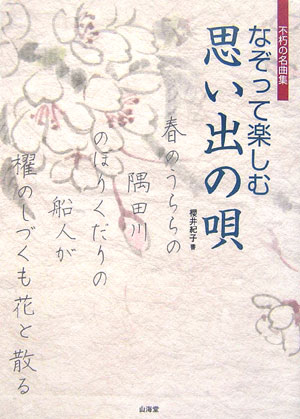 不朽の名曲集
なぞって楽しむ
思い出の唄
櫻井紀子 書
春のうららの
隅田川
のぼりくだりの
船人が
櫂のしづくも花と散る
山海堂